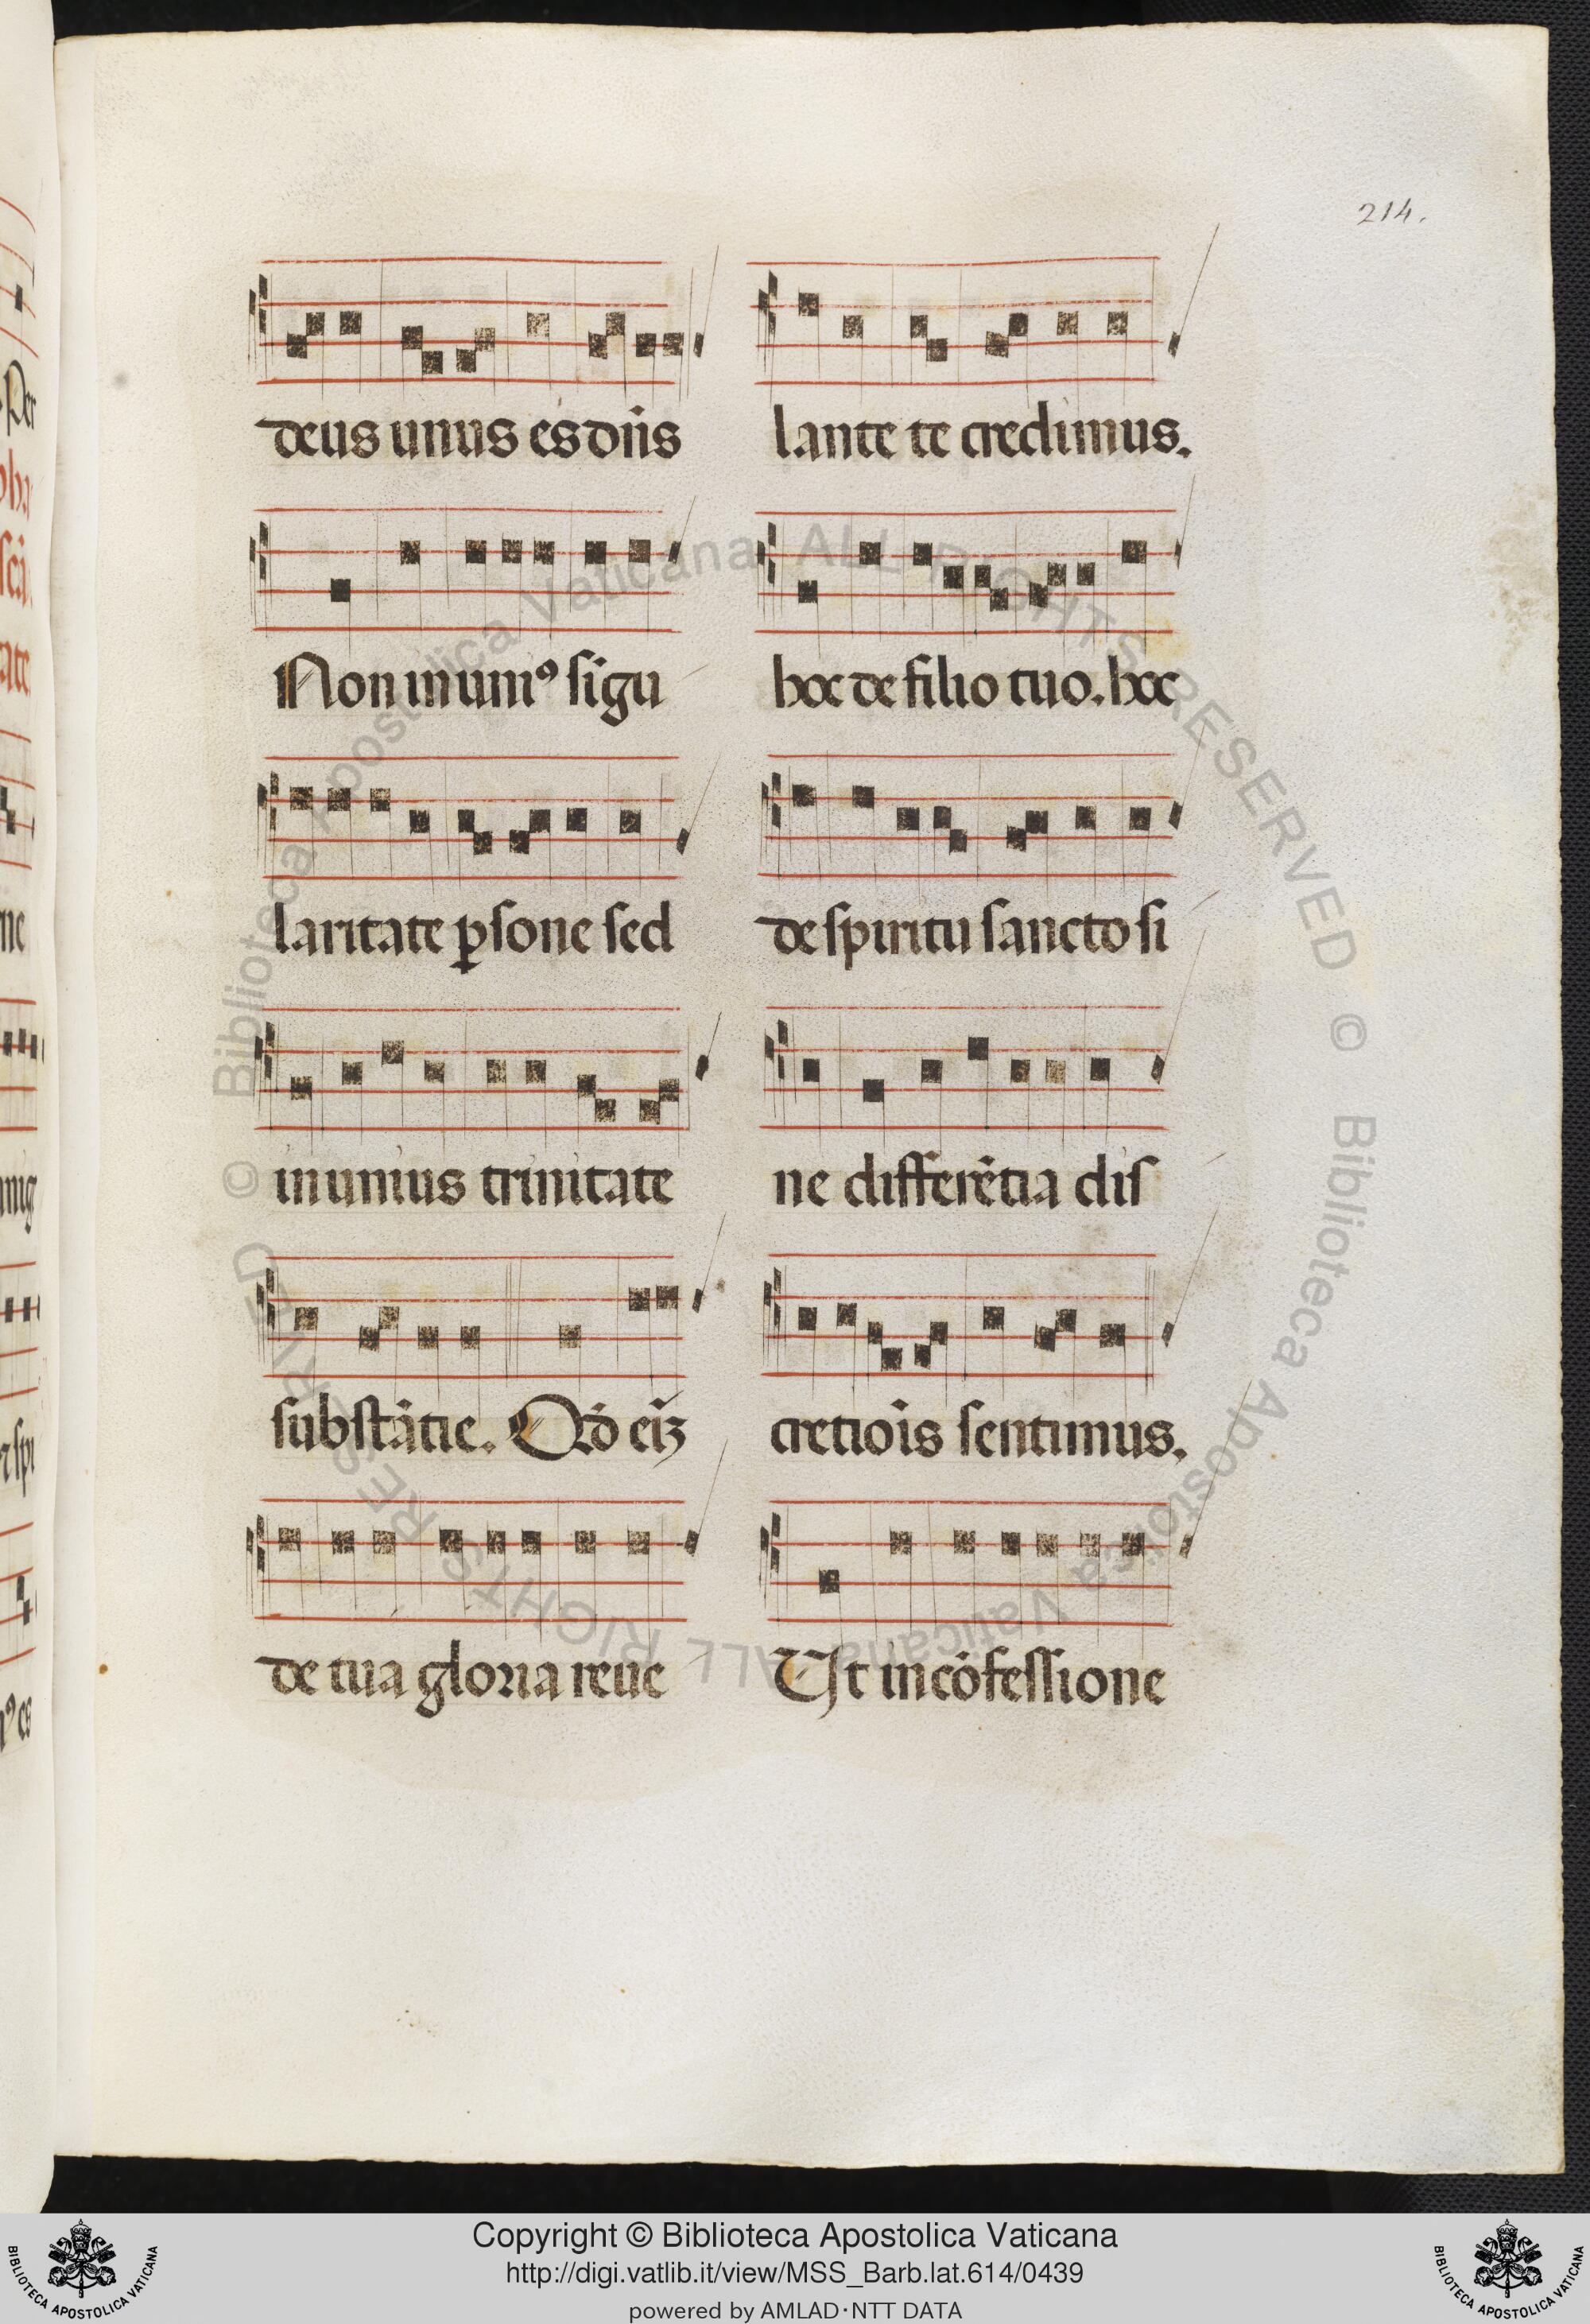 214.
deus unus es dñs
Non in unius sigu
laritate ꝑsone sed
in unius trinitate
substātie. Qd̄ eiꝫ
de tua gloria reue
lante te credimus.
hoc de filio tuo. hoc
de spiritu sancto si
ne differētia dis
cretiōis sentimus.
Ut in cōfessione
© Biblioteca Apostolica Vaticana ALL RIGHTS RESERVED © Biblioteca Apostolica Vaticana ALL RIGHTS RESERVED
Copyright © Biblioteca Apostolica Vaticana
http://digi.vatlib.it/view/MSS_Barb.lat.614/0439
powered by AMLAD·NTT DATA
BIBLIOTECA APOSTOLICA VATICANA
BIBLIOTECA APOSTOLICA VATICANA